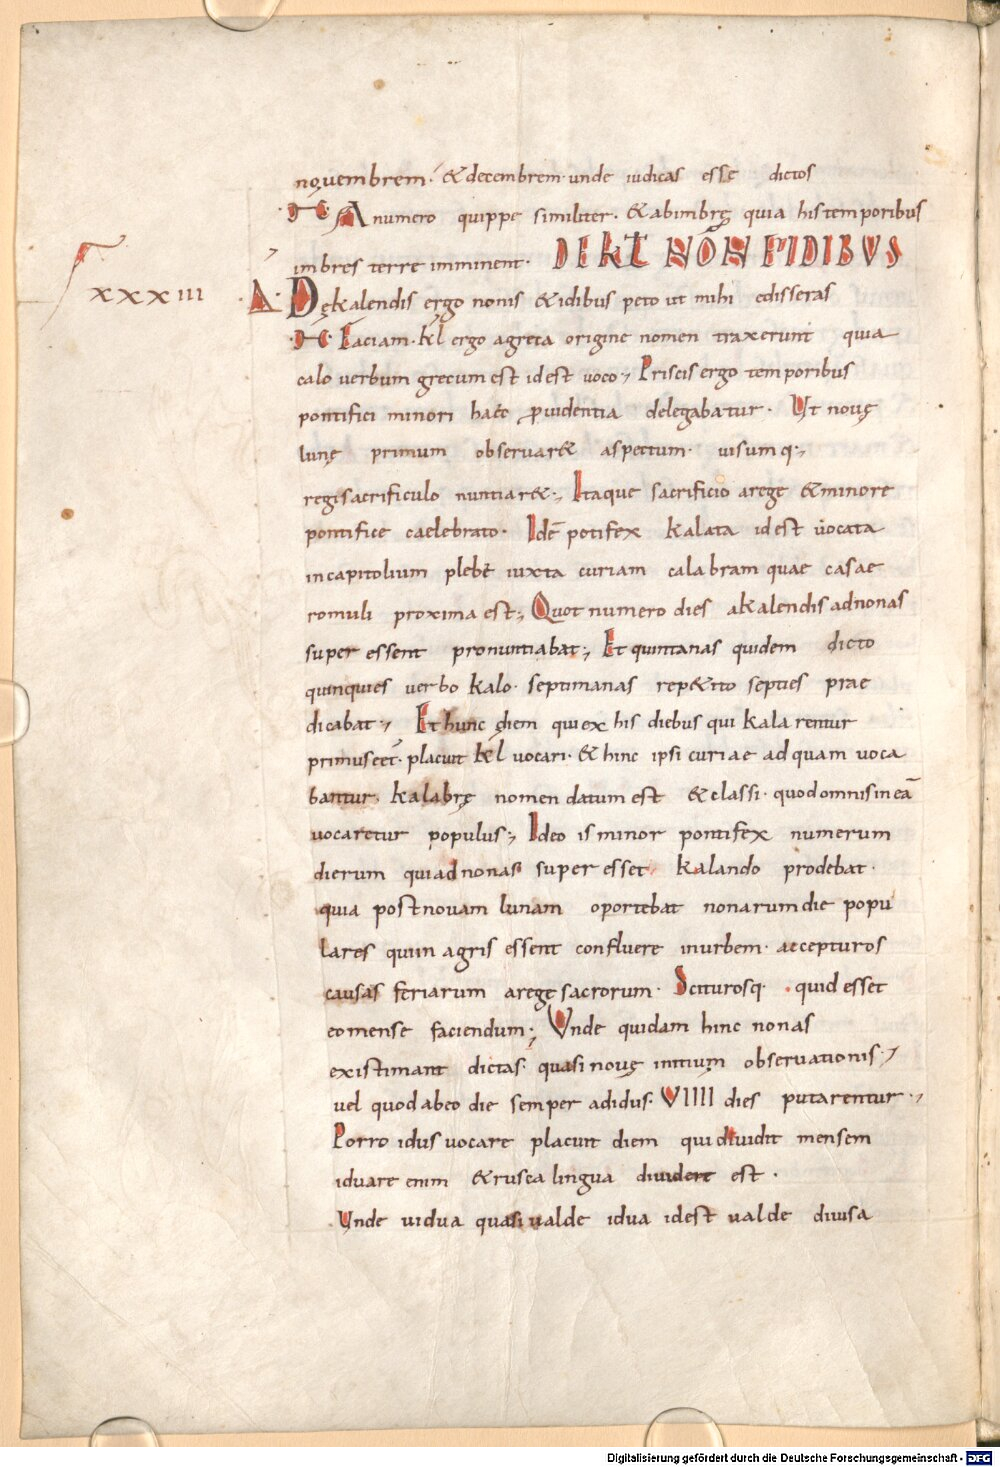 nouembrem· & decembrem· unde iudicas esse dictos
·M· A numero quippe similiter· & ab imbrę quia his temporibus
imbres terre imminent· DE KL NON ET IDIBUS
XXXIII
·Δ· Dękalendis ergo nonis & idibus peto ut mihi edisseras
·M· Faciam· kl ergo agreca origine nomen traxerunt quia
calo uerbum grecum est idest uoco·, Priscis ergo temporibus
pontifici minori haec prouidentia delegabatur· Ut nouę
lunę primum obseruar& aspectum· uisumq·,
regi sacrificulo nuntiar&·, Itaque sacrificio arege & minore
pontifice caelebrato· Idē potifex kalata id est uocata
incapitolium plebē iuxta curiam calabram quae casae
romuli proxima est·, Quot numero dies akalendis adnonas
super essent pronuntiabat·, Et quintanas quidem dicto
quinquies uerbo kalo· septimanas rep&ito septies prae
dicabat·, Et hunc diem qui ex his diebus qui kalarentur
primus eet· placuit kl uocari· & hinc ipsi curiae ad quam uoca
bantur· kalabrę nomen datum est & classi· quod omnis in eā
uocaretur populus·, Ideo is minor pontifex numerum
dierum qui ad nonas super esset kalando prodebat·
quia post nouam lunam oportebat nonarum die popu
lares qui in agris essent confluere inurbem· accepturos
causas feriarum a regę sacrorum· Sciturosq· quid esset
eo mense faciendum·, Unde quidam hinc nonas
existimant dictas· quasi nouę initium obseruationis·,
uel quod ab eo die semper ad idus· VIIII dies putarentur·,
Porro idus uocare placuit diem qui diuidit mensem
iduare enim & rusca lingua diuidere est·
Unde uidua quasi ualde idua id est ualde diuisa
Digitalisierung gefördert durch die Deutsche Forschungsgemeinschaft - DFG